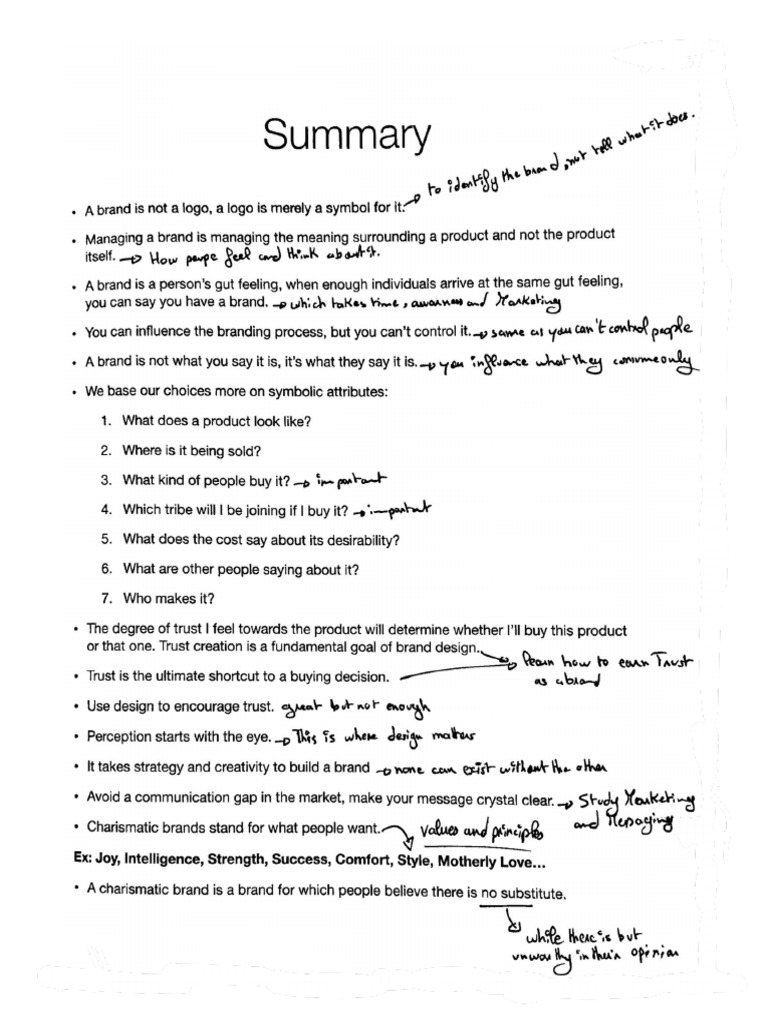 Summary
• A brand is not a logo, a logo is merely a symbol for it. → to identify the brand, not tell what it does.
• Managing a brand is managing the meaning surrounding a product and not the product
itself. → How peope feel and think about it.
• A brand is a person's gut feeling, when enough individuals arrive at the same gut feeling,
you can say you have a brand. → which takes time, awarness and Marketing
• You can influence the branding process, but you can't control it. → same as you can't control people
• A brand is not what you say it is, it's what they say it is. → you influence what they consume only
• We base our choices more on symbolic attributes:
1. What does a product look like?
2. Where is it being sold?
3. What kind of people buy it? → important
4. Which tribe will I be joining if I buy it? → important
5. What does the cost say about its desirability?
6. What are other people saying about it?
7. Who makes it?
• The degree of trust I feel towards the product will determine whether I'll buy this product
or that one. Trust creation is a fundamental goal of brand design.
→ learn how to earn Trust
• Trust is the ultimate shortcut to a buying decision.
as a brand
• Use design to encourage trust. great but not enough
• Perception starts with the eye. → This is where design matters
• It takes strategy and creativity to build a brand → none can exist without the other
• Avoid a communication gap in the market, make your message crystal clear. → Study Marketing
and Messaging
• Charismatic brands stand for what people want. → values and principles
Ex: Joy, Intelligence, Strength, Success, Comfort, Style, Motherly Love...
• A charismatic brand is a brand for which people believe there is no substitute.
→ while there is but
unworthy in their opinion